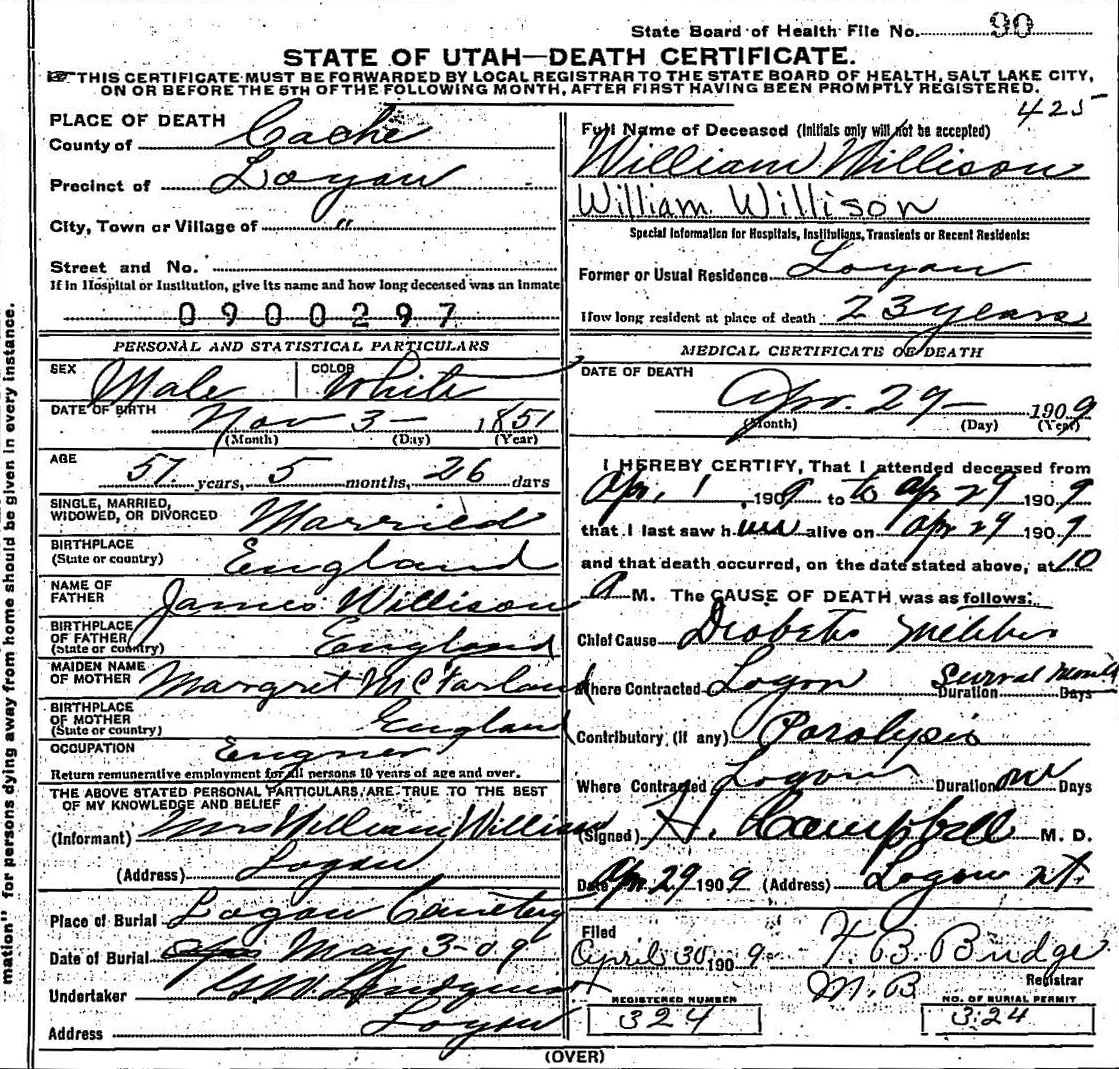 State Board of Health File No. 90
STATE OF UTAH—DEATH CERTIFICATE.
THIS CERTIFICATE MUST BE FORWARDED BY LOCAL REGISTRAR TO THE STATE BOARD OF HEALTH, SALT LAKE CITY,
ON OR BEFORE THE 5TH OF THE FOLLOWING MONTH, AFTER FIRST HAVING BEEN PROMPTLY REGISTERED.
425
PLACE OF DEATH
County of Cache
Precinct of Logan
City, Town or Village of "
Street and No.
If in Hospital or Institution, give its name and how long deceased was an inmate
0900297
PERSONAL AND STATISTICAL PARTICULARS
SEX Male COLOR White
DATE OF BIRTH Nov 3 - 1851
(Month) (Day) (Year)
AGE 57 years, 5 months, 26 days
SINGLE, MARRIED,
WIDOWED, OR DIVORCED Married
BIRTHPLACE
(State or country) England
NAME OF
FATHER James Willison
BIRTHPLACE
OF FATHER
(State or country) England
MAIDEN NAME
OF MOTHER Margret McFarland
BIRTHPLACE
OF MOTHER
(State or country) England
OCCUPATION Engner
Return remunerative employment for all persons 10 years of age and over.
THE ABOVE STATED PERSONAL PARTICULARS ARE TRUE TO THE BEST
OF MY KNOWLEDGE AND BELIEF
(Informant) Mrs William Willison
(Address) Logan
Place of Burial Logan Cemetery
Date of Burial May 3-09
Undertaker Lindquist
Address Logan
Full Name of Deceased (Initials only will not be accepted)
William Willison
William Willison
Special Information for Hospitals, Institutions, Transients or Recent Residents:
Former or Usual Residence Logan
How long resident at place of death 23 years
MEDICAL CERTIFICATE OF DEATH
DATE OF DEATH
Apr. 29 - 1909
(Month) (Day) (Year)
I HEREBY CERTIFY, That I attended deceased from
Apr. 1 1909 to to Apr 29 1909
that I last saw him alive on Apr 29 1909
and that death occurred, on the date stated above, at 10
A M. The CAUSE OF DEATH was as follows:
Chief Cause Diabetis Melitis
Where Contracted Logan Duration Several Months Days
Contributory (if any) Paralysis
Where Contracted Logan Duration Days
(Signed) H. Campbell M. D.
Date Apr 29 1909 (Address) Logan Ut.
Filed
April 30 1909 F. B. Budge
M.B Registrar
REGISTERED NUMBER
324
NO. OF BURIAL PERMIT
324
(OVER)
mation" for persons dying away from home should be given in every instance.